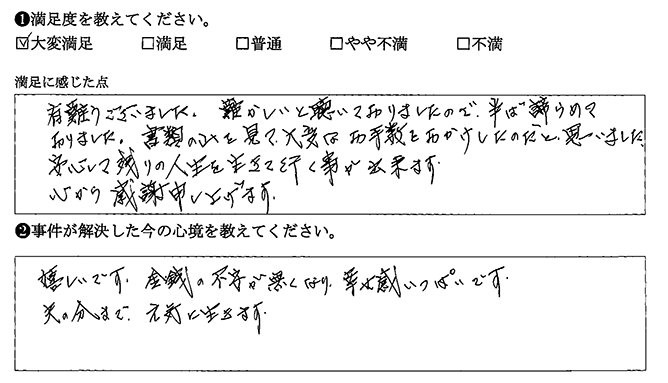 ❶満足度を教えてください。
☑大変満足 □満足 □普通 □やや不満 □不満
満足に感じた点
有難うございました。難かしいと聴いておりましたので、半ば諦らめて
おりました。書類のみを見て、大変はお手数をおかけしたのだと、思いました。
安心して残りの人生を生きて行く事が出来ます。
心から感謝申し上げます。
❷事件が解決した今の心境を教えてください。
嬉しいです。金銭の不安が無くなり、幸せ感いっぱいです。
夫の分まで、元気に生きます。